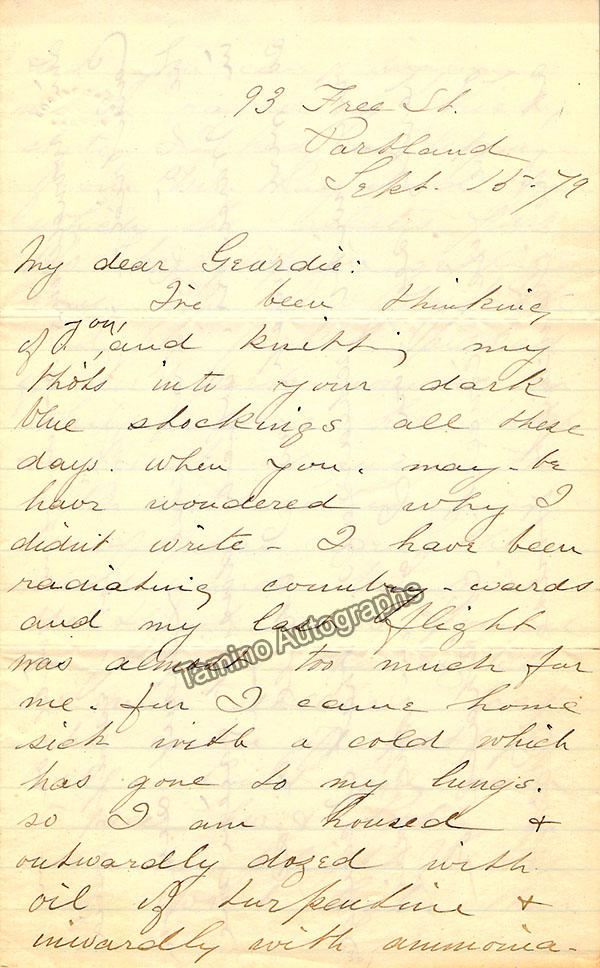 93 Free St.
Portland
Sept. 15-79
My dear Geordie:
I've been thinking
of you, and knitting my
tho'ts into your dark
blue stockings all these
days. when you. may-be
have wondered why I
didn't write - I have been
radiating country-wards
and my last flight
was almost too much for
me. for I came home
sick with a cold which
has gone to my lungs.
so I am housed &
outwardly dozed with
oil of turpentine &
inwardly with ammonia-
Tamino Autographs